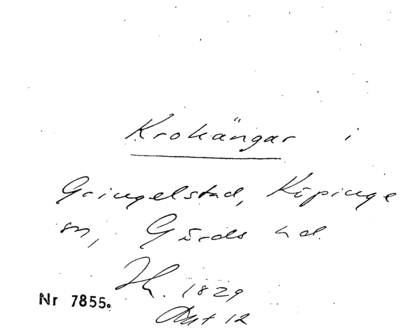 Krokängar i
Gringelstad, Köpinge
sn, Gärds hd.
Nr 7855. 1829
Akt 12